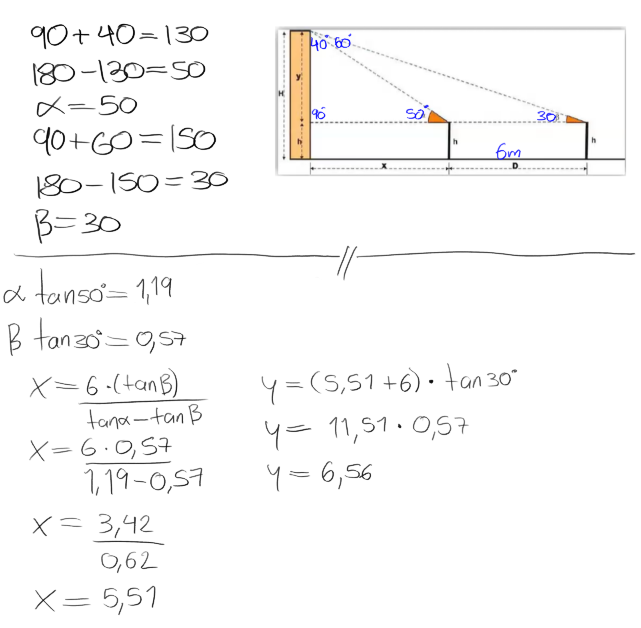 90+40=130
180-130=50
α=50
90+60=150
180-150=30
β=30
H
y
h
40° 60°
90°
50°
30°
h
h
6m
x
D
α tan50°=1,19
β tan30°=0,57
X=6·(tanβ)
tanα-tanβ
X=6·0,57
1,19-0,57
X=3,42
0,62
X=5,51
y=(5,51+6)·tan30°
y=11,51·0,57
y=6,56